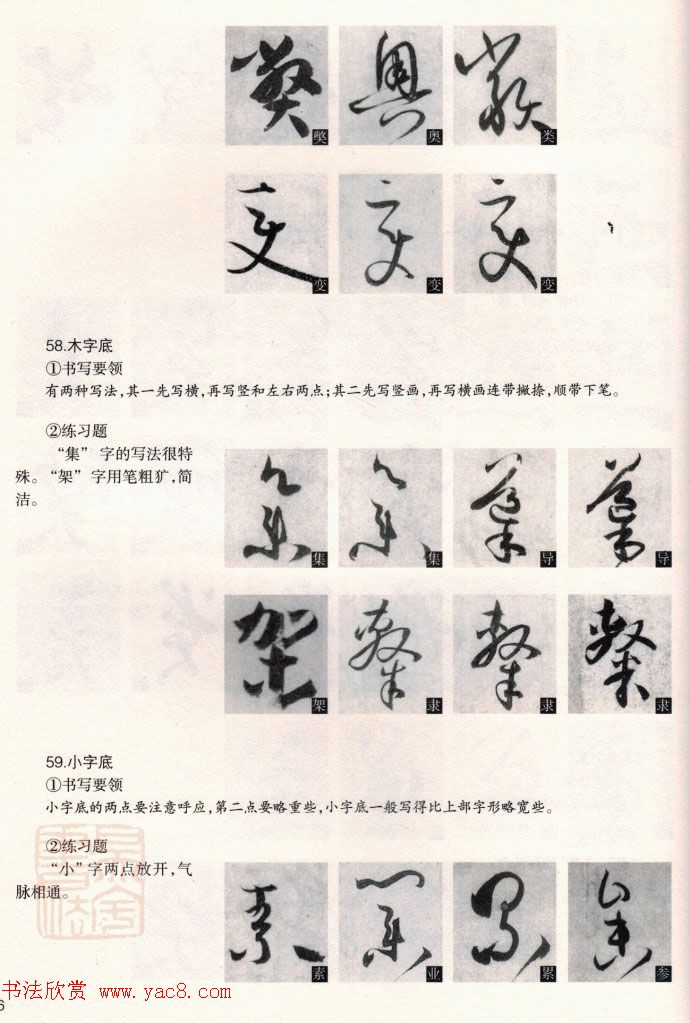 獘 奥 类
变 变 变
58.木字底
①书写要领
有两种写法,其一先写横,再写竖和左右两点;其二先写竖画,再写横画连带撇捺,顺带下笔。
②练习题
“集”字的写法很特
殊。“架”字用笔粗犷,简
洁。
集 集 导 导
架 隶 隶 隶
59.小字底
①书写要领
小字底的两点要注意呼应,第二点要略重些,小字底一般写得比上部字形略宽些。
②练习题
“小”字两点放开,气
脉相通。
素 业 累 参
书法欣赏 www.yac8.com
6